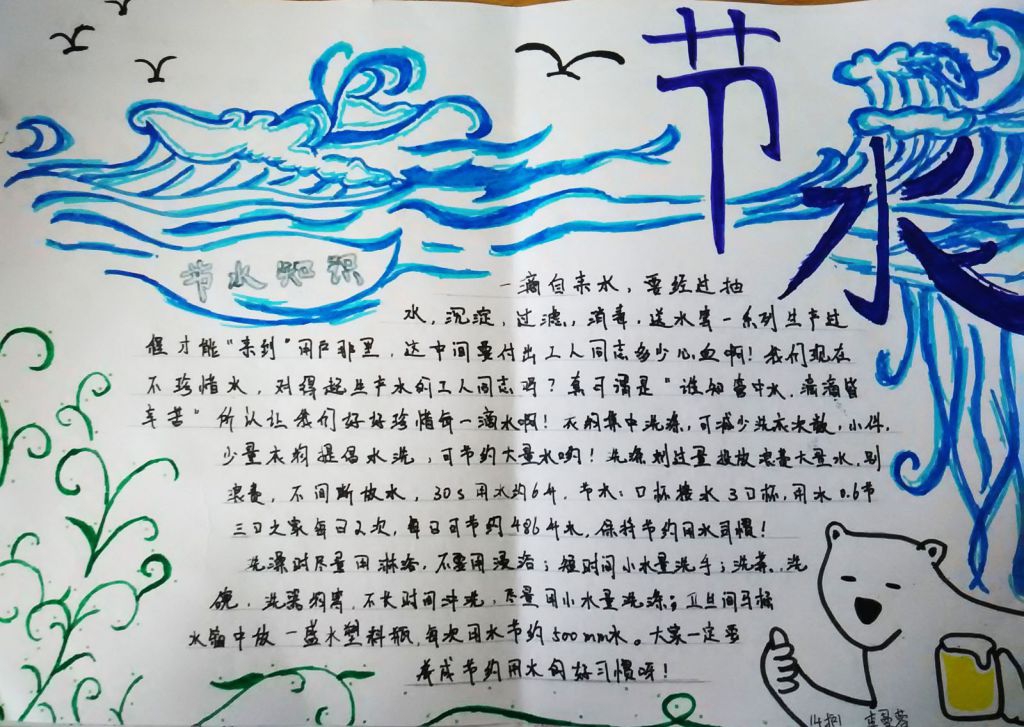 节
水
节水知识
一滴自来水，要经过抽
水，沉淀，过滤，消毒，送水等一系列生产过
程才能“来到”用户那里，这中间要付出工人同志多少心血啊！我们现在
不珍惜水，对得起生产水的工人同志吗？真可谓是“谁知壶中水，滴滴皆
辛苦”所以让我们好好珍惜每一滴水啊！衣物集中洗涤，可减少洗衣次数，小件，
少量衣物提倡水洗，可节约大量水哟！洗涤剂过量投放浪费大量水，别
浪费，不间断放水，30s用水约6升，节水：口杯接水3口杯，用水0.6节
三口之家每日2次，每日可节约486升水，保持节约用水习惯！
洗澡时尽量用淋浴，不要用浸浴；短时间小水量洗手；洗菜、洗
碗，洗潔物离，不长时间冲洗，尽量用小水量洗涤；卫生间马桶
水箱中放一盛水塑料瓶，每次用水节约500mm水。大家一定要
养成节约用水的好习惯呀！